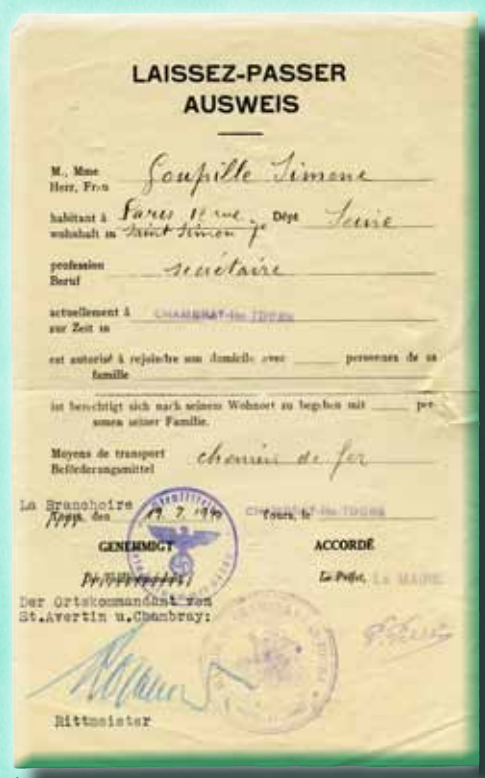 LAISSEZ-PASSER
AUSWEIS
M., Mme
Herr, Frau
Goupille Simone
habitant à Paris 12 rue Dépt Seine
wohnhaft in Saint Simon 7e
profession
Beruf
secrétaire
actuellement à CHAMBRAY-lès-TOURS
zur Zeit in
est autorisé à rejoindre son domicile avec personnes de sa
famille
ist berechtigt sich nach seinem Wohnort zu begeben mit per-
sonen seiner Familie.
Moyens de transport
Beförderungsmittel
chemin de fer
La Branchoire
Tours, den 19.7.1940 CHAMBRAY-lès-TOURS Tours, le
GENEHMIGT ACCORDÉ
Le Préfet, LE MAIRE
Der Ortskommandant von
St.Avertin u.Chambray:
Rittmeister